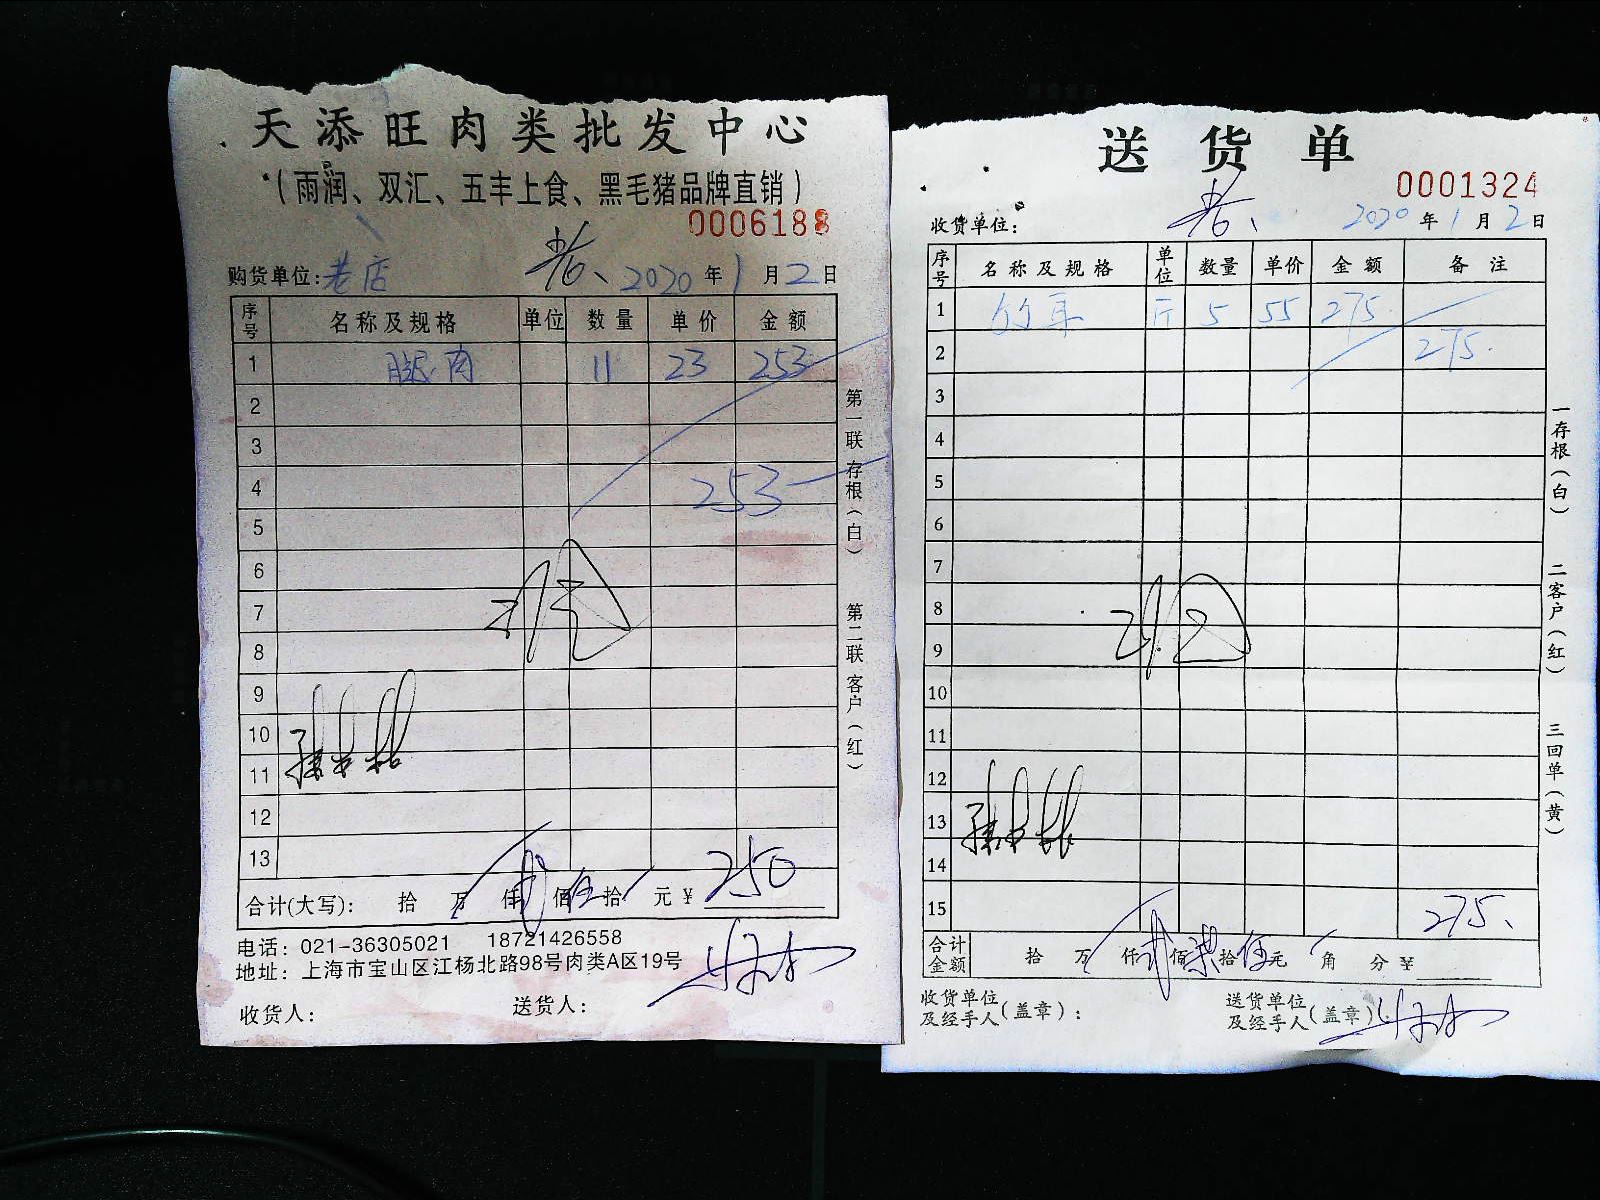 天添旺肉类批发中心
（雨润、双汇、五丰上食、黑毛猪品牌直销）
0006188
老、
购货单位：老店 2020年1月2日
序号 名称及规格 单位 数量 单价 金额
1 腿肉 11 23 253
2
3
4 253
5
6
7
8
9
10
11
12
13
合计(大写)： 拾 万 仟 贰 佰 伍 拾 元 ¥ 250
电话：021-36305021 18721426558
地址：上海市宝山区江杨北路98号肉类A区19号
收货人： 送货人：
第一联 存根（白） 第二联 客户（红）
送货单
0001324
收货单位： 老、 2020年1月2日
序号 名称及规格 单位 数量 单价 金额 备注
1 斤 5 55 275
2 275.
3
4
5
6
7
8
9
10
11
12
13
14
15 275、
合计金额 拾 万 仟 贰 佰 柒 拾 伍 元 角 分 ¥
收货单位及经手人（盖章）： 送货单位及经手人（盖章）：
一存根（白） 二客户（红） 三回单（黄）